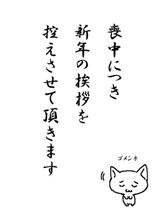 喪中につき
新年の挨拶を
控えさせて頂きます
ゴメンネ